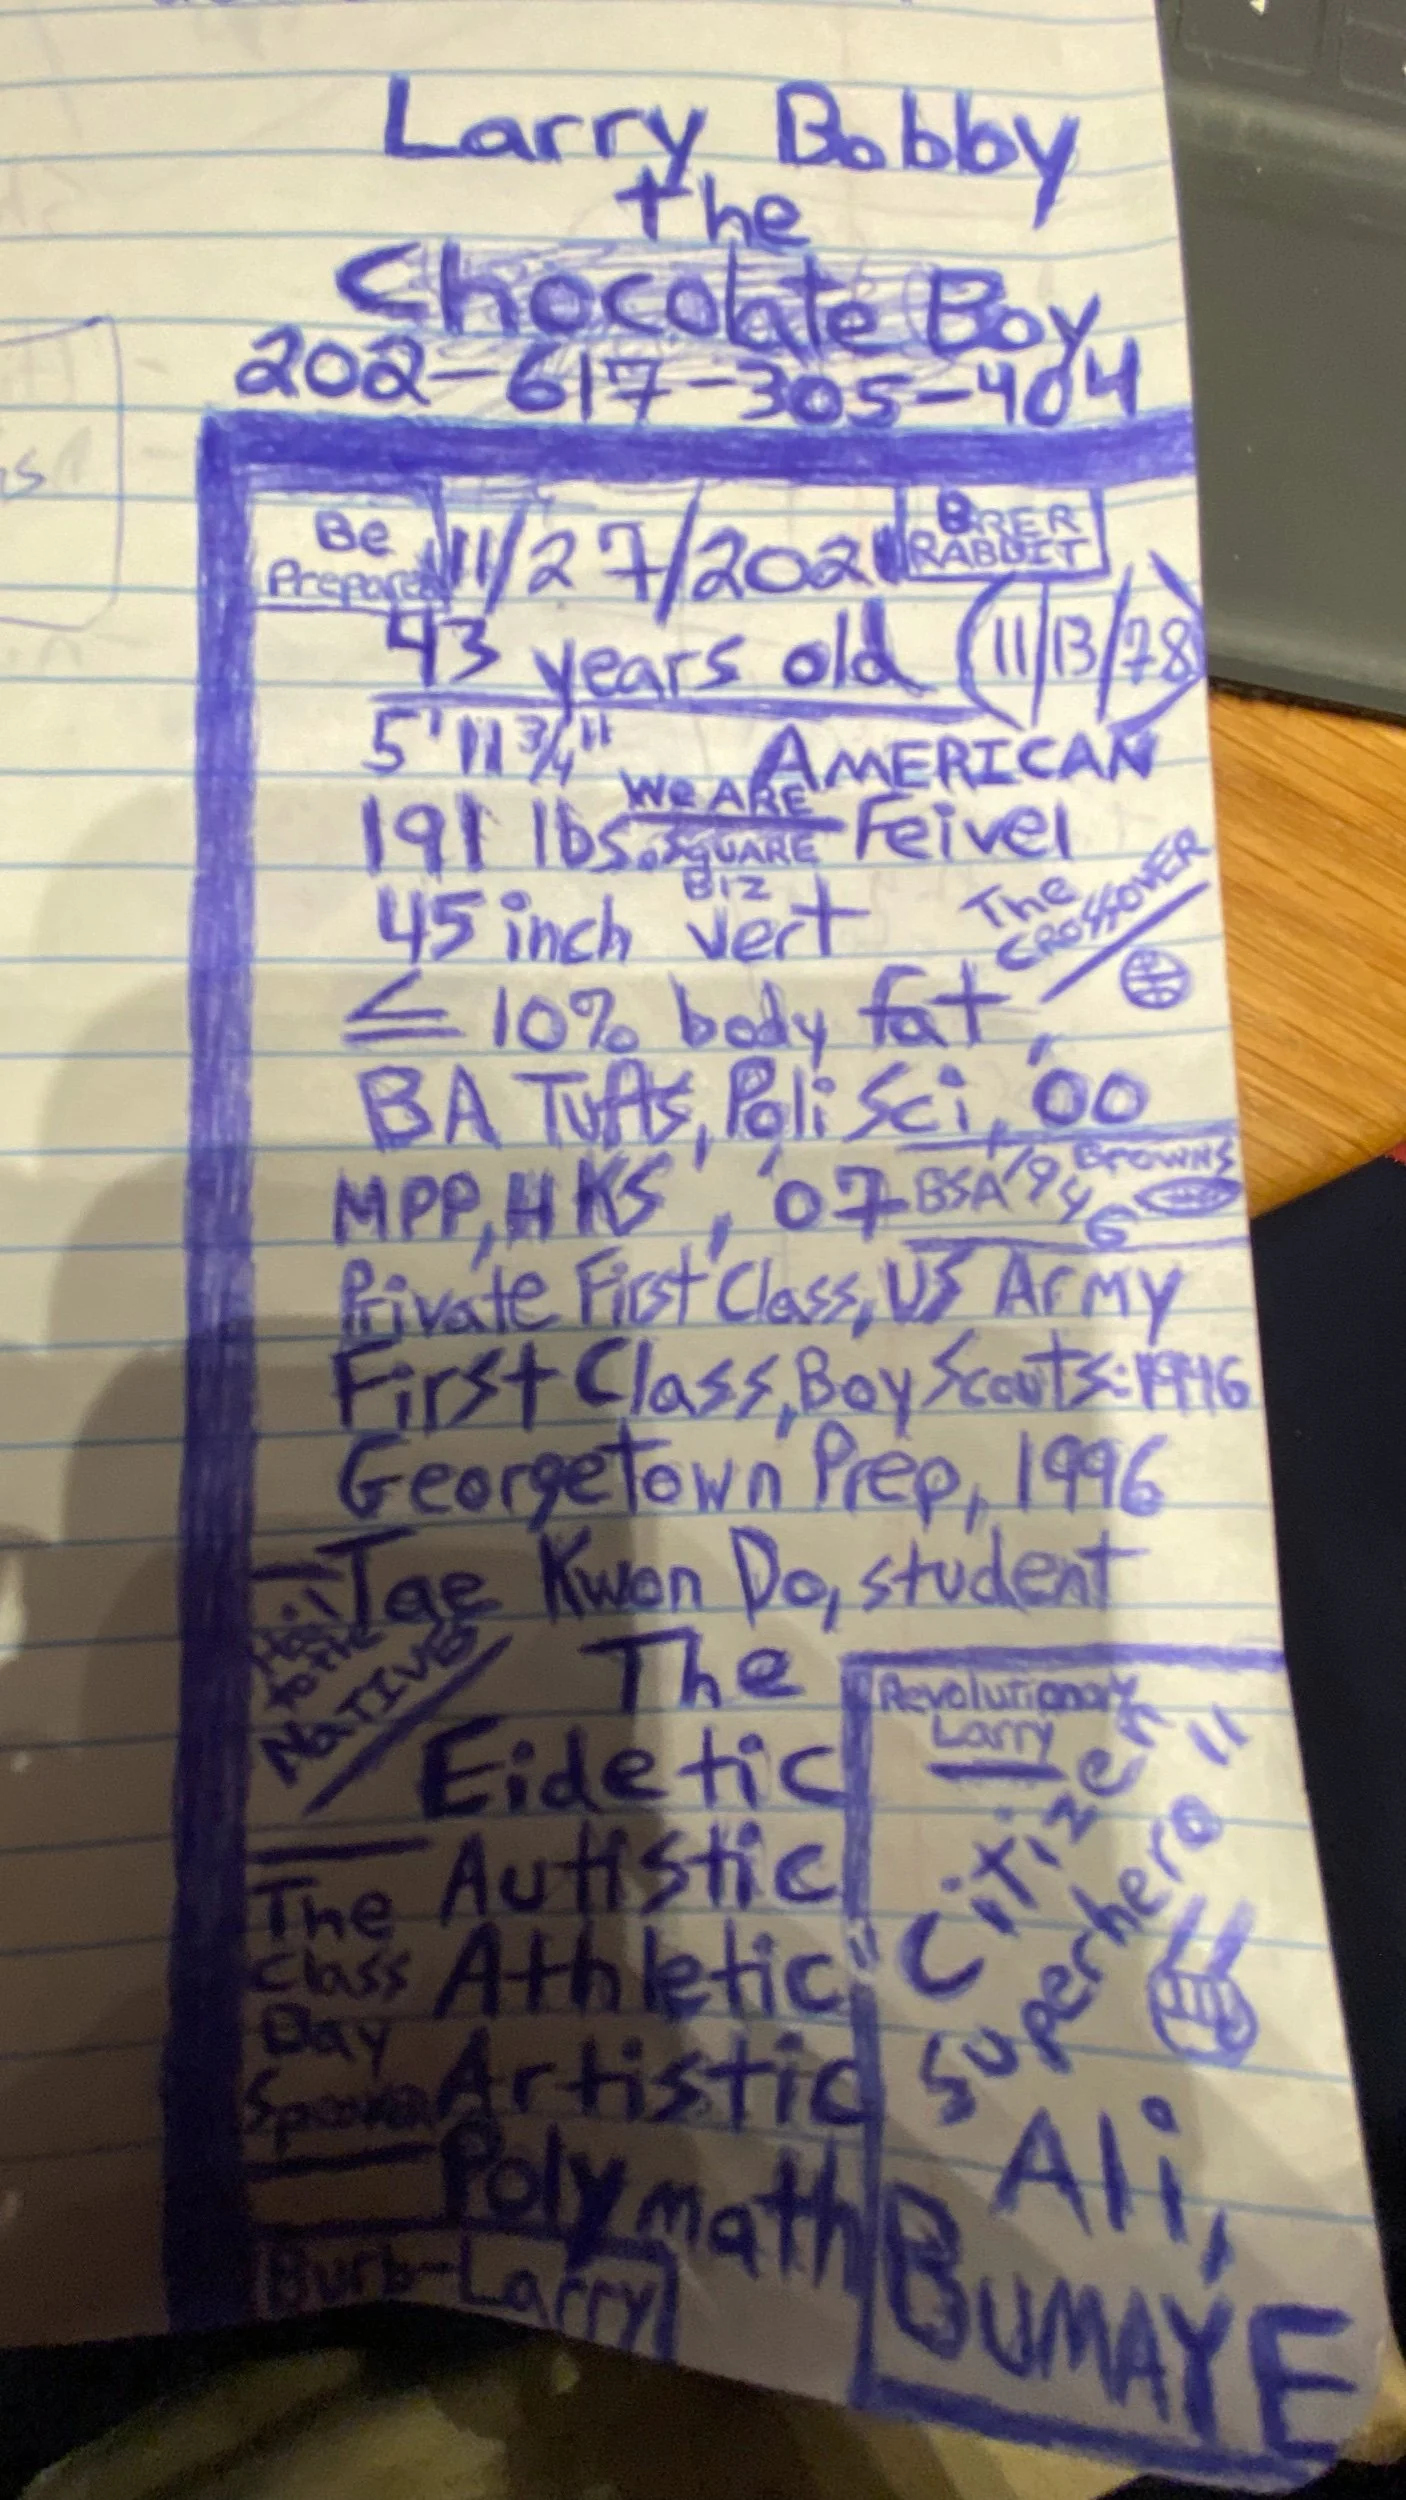 Larry Bobby
the
Chocolate Boy
202-617-305-404
Be
Prepared
11/27/2021
BRER
RABBIT
43 years old (11/13/78)
5'11 3/4"
AMERICAN
191 lbs.
WE ARE
SQUARE
BIZ
Feivel
45 inch vert
The
CROSSOVER
≤ 10% body fat
BA Tufts, Poli Sci, '00
MPP, HKS, '07
BSA '94
BROWNS
Private First Class, US Army
First Class, Boy Scouts:
Georgetown Prep, 1996
Tae Kwon Do, student
Hail
to the
NATIVES
The
Eidetic
Autistic
Athletic
Artistic
Polymath
The
Class
Day
Burb-Larry
Revolutionary
Larry
"Citizen
Superhero"
Ali,
BUMAYE